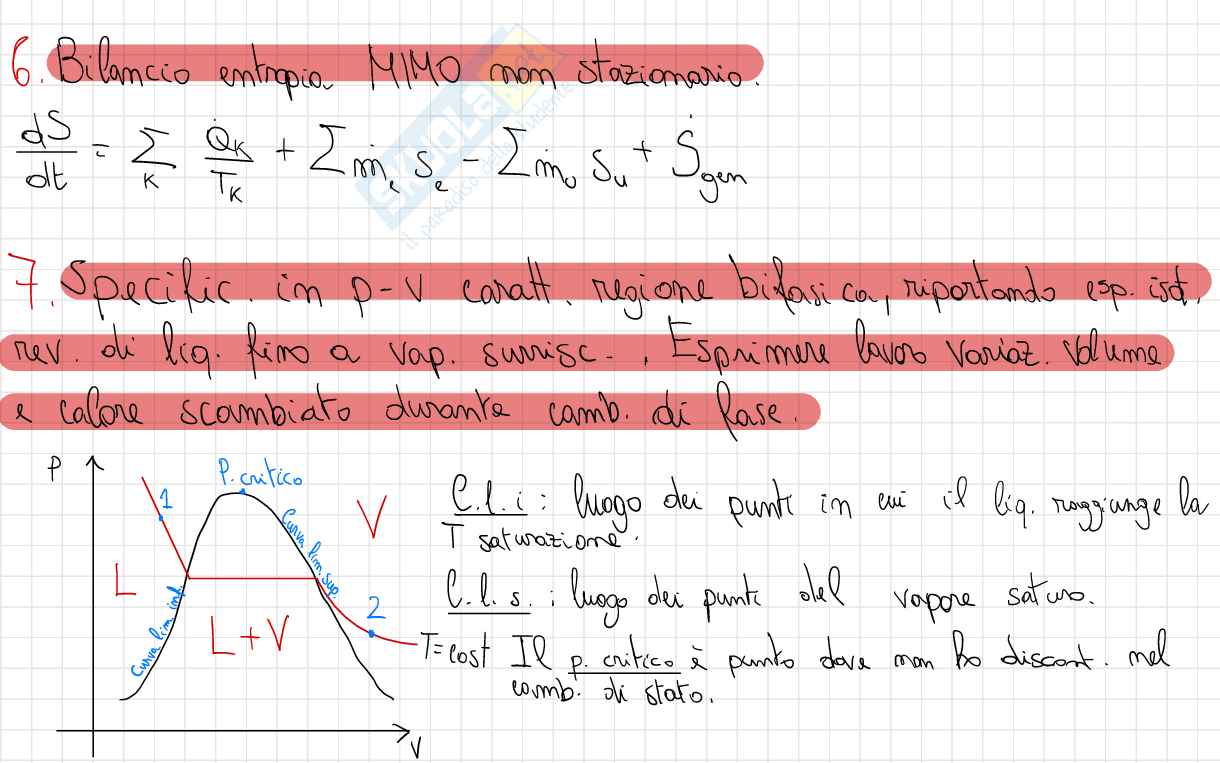 6. Bilancio entropia MIMO non stazionario.
dS/dt = Σ_K Q̇_K/T_K + Σ ṁ_e s_e - Σ ṁ_u s_u + Ṡ_gen
SKUOLA.net
il paradiso dello studente
7. Specific. in p-v caratt. regione bifasica, riportando esp. isot.
rev. di liq. fino a vap. surrisc.. Esprimere lavoro variaz. volume
e calore scambiato durante camb. di fase.
P
P. critico
1
Curva lim. sup.
V
L
Curva lim. inf.
L+V
2
T=cost
V
C.l.i: luogo dei punti in cui il liq. raggiunge la
T saturazione.
C.l.s.: luogo dei punti del vapore saturo.
Il p. critico è punto dove non ho discont. nel
camb. di stato.